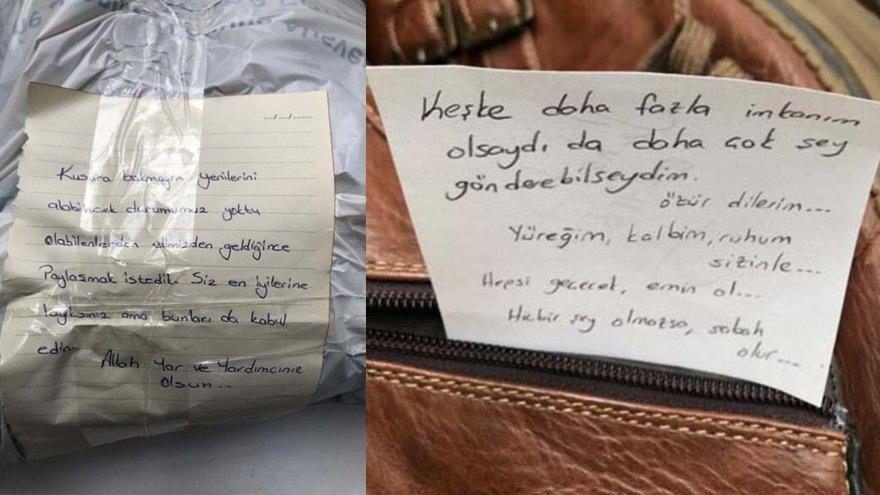 -/-/-
Kusura bakmayın yenilerini
alabilecek durumumuz yoktu
olabilenlerden elimizden geldiğince
Paylaşmak istedik. Siz en iyilerine
layıksınız ama bunları da kabul
edin.
Allah Yar ve Yardımcınız
olsun...
Keşke daha fazla imkanım
olsaydı da daha çok şey
gönderebilseydim.
özür dilerim...
Yüreğim, kalbim, ruhum
sizinle...
Hepsi geçecek, emin ol...
Hiçbir şey olmazsa, sabah
olur...